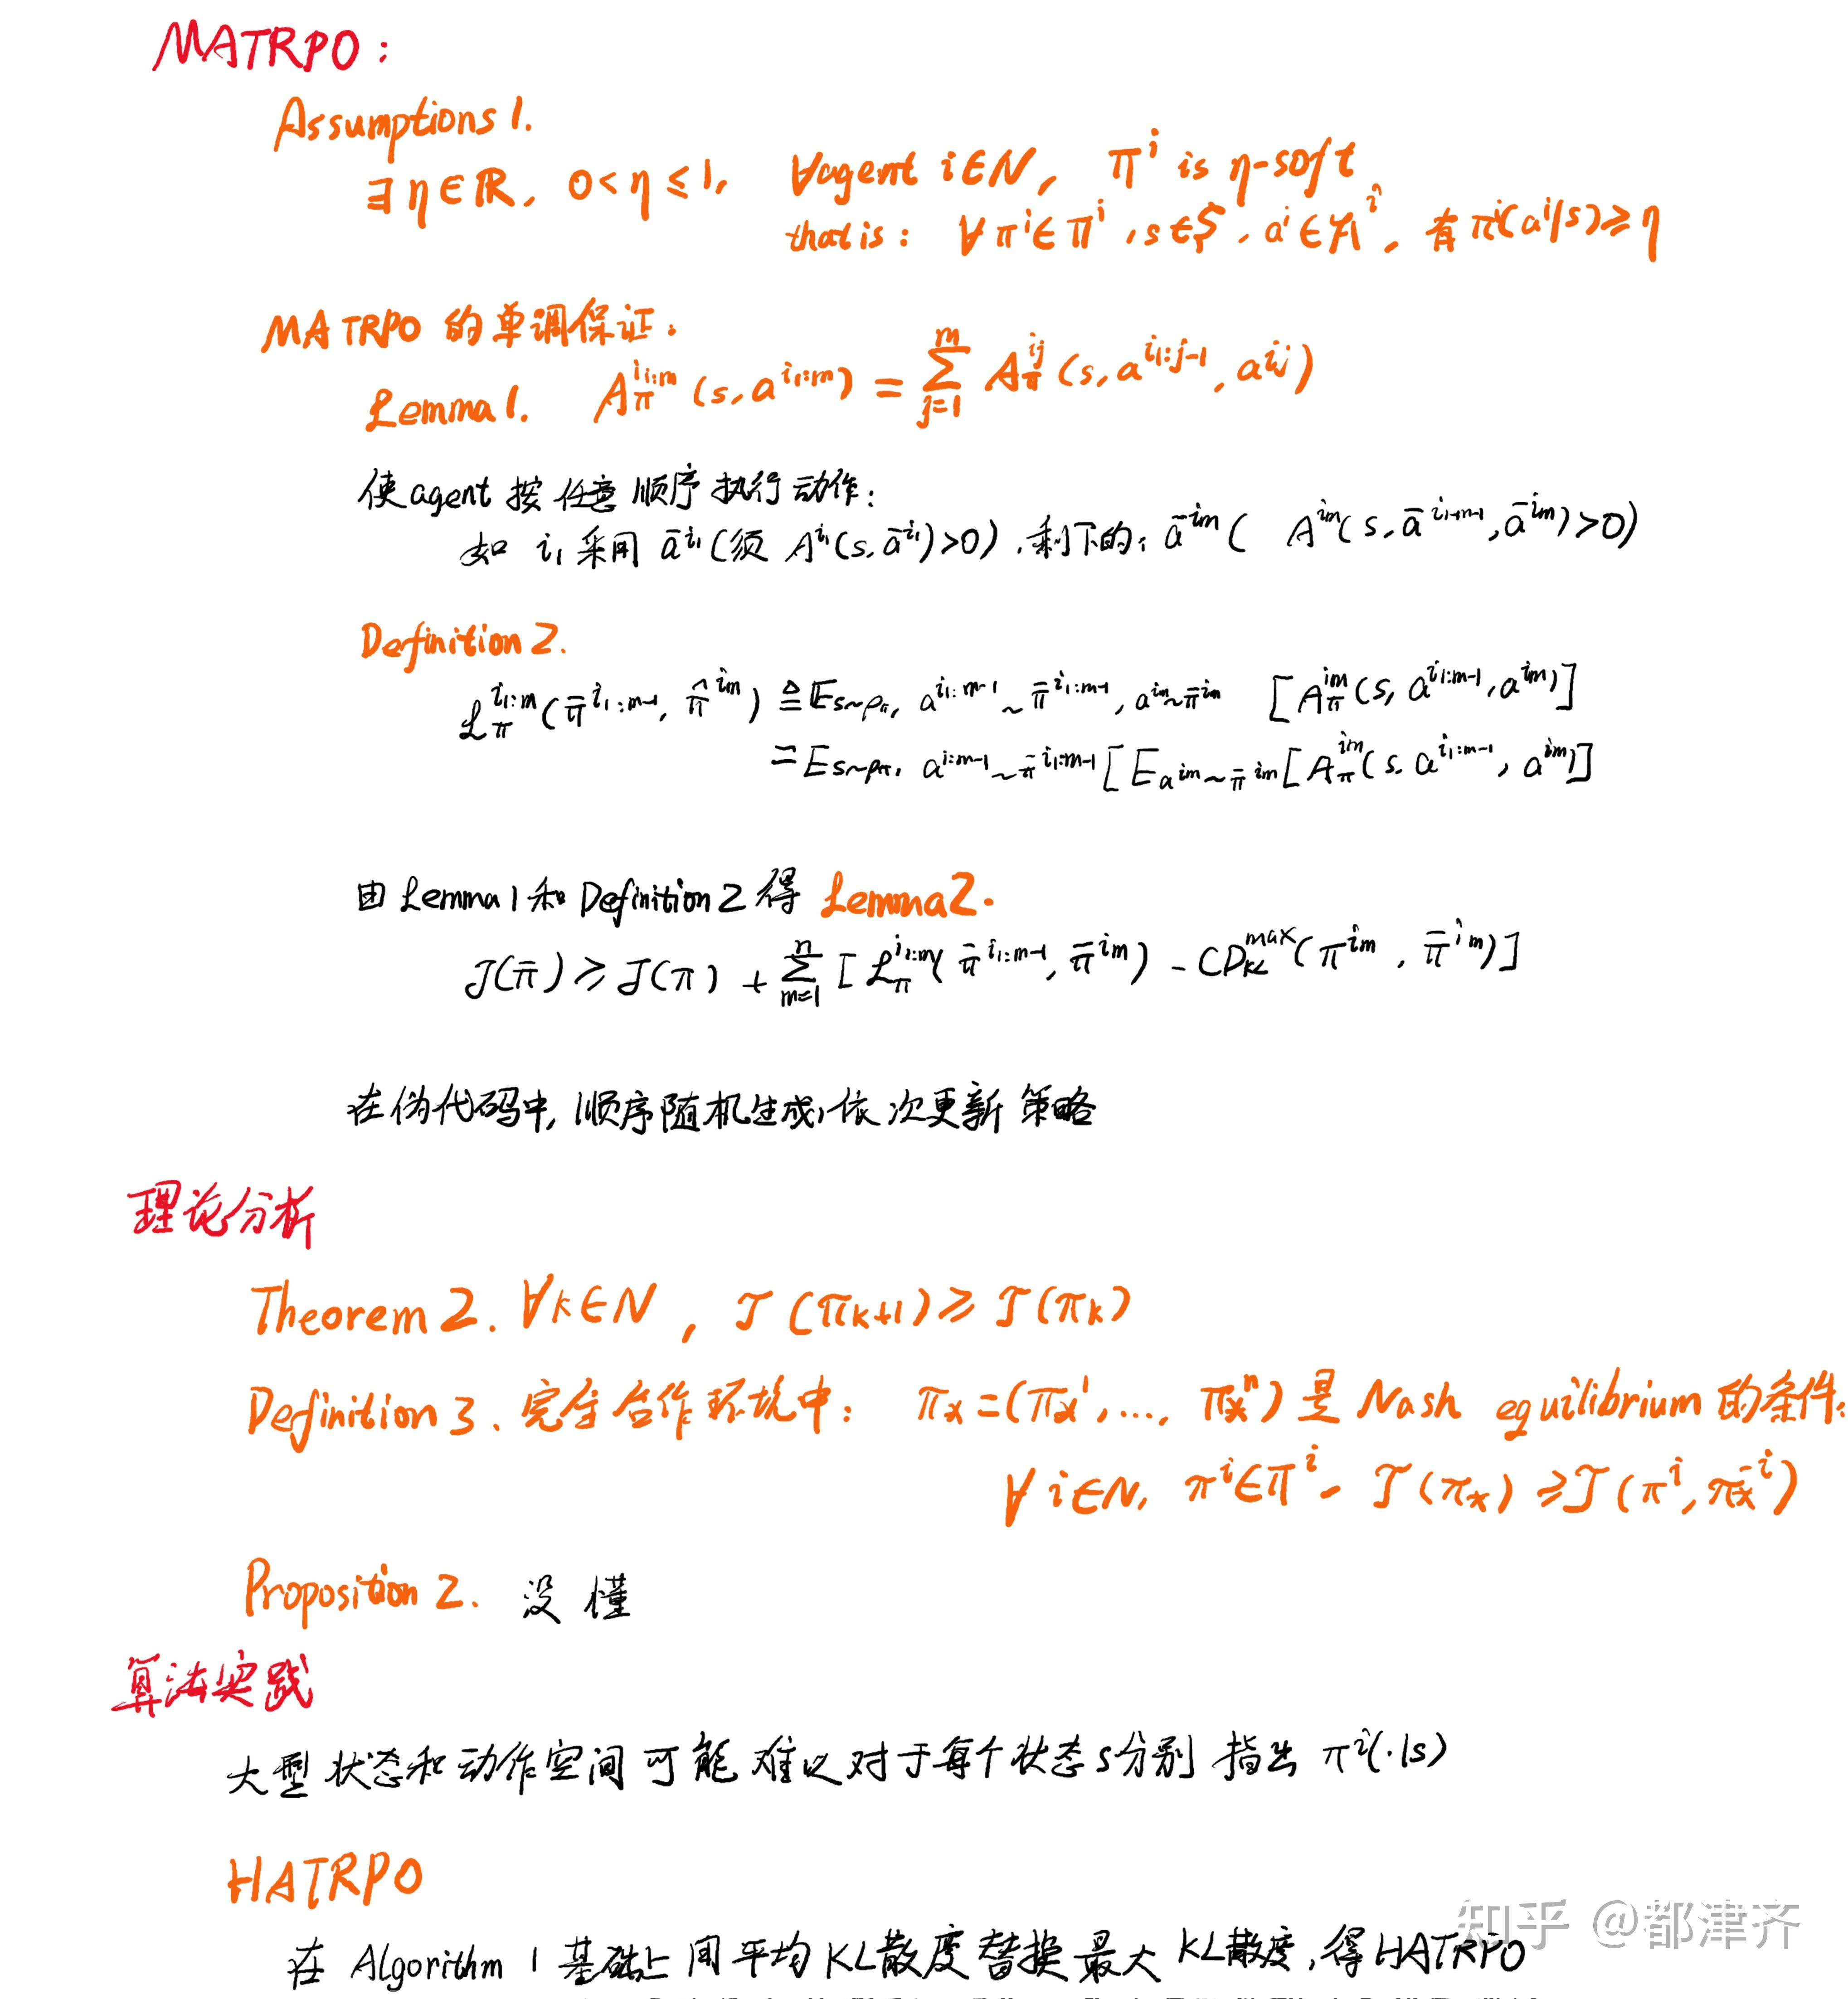 MATRPO:
Assumptions 1.
∃η∈ℝ, 0<η≤1, ∀agent i∈N, π^i is η-soft
that is: ∀π^i∈Π^i, s∈S, a^i∈A^i, 有π^i(a^i|s)≥η
MATRPO 的单调保证:
Lemma 1. A_π^{i_{1:m}}(s, a^{i_{1:m}}) = Σ_{j=1}^{m} A_π^{i_j}(s, a^{i_{1:j-1}}, a^{i_j})
使agent 按任意顺序执行动作:
如 i_1 采用 ā^{i_1}(须 A^{i_1}(s, ā^{i_1})>0), 剩下的: ā^{i_m}( A^{i_m}(s, ā^{i_{1:m-1}}, ā^{i_m})>0)
Definition 2.
L_π^{i_{1:m}}(π̄^{i_{1:m-1}}, π̂^{i_m}) ≜ E_{s~ρ_π, a^{i_{1:m-1}}~π̄^{i_{1:m-1}}, a^{i_m}~π̄^{i_m}} [A_π^{i_m}(s, a^{i_{1:m-1}}, a^{i_m})]
= E_{s~ρ_π, a^{i:m-1}~π̄^{i_{1:m-1}}}[E_{a^{i_m}~π̄^{i_m}}[A_π^{i_m}(s, a^{i_{1:m-1}}, a^{i_m})]
由 Lemma 1 和 Definition 2 得 Lemma 2.
J(π̄) ≥ J(π) + Σ_{m=1}^{n} [L_π^{i_{1:m}}(π̄^{i_{1:m-1}}, π̄^{i_m}) - CD_{KL}^{max}(π^{i_m}, π̄^{i_m})]
在伪代码中, 顺序随机生成, 依次更新 策略
理论分析
Theorem 2. ∀k∈N, J(π_{k+1}) ≥ J(π_k)
Definition 3. 完全合作环境中: π_* = (π_*^1, ..., π_*^n) 是 Nash equilibrium 的条件:
∀i∈N, π^i∈Π^i, J(π_*) ≥ J(π^i, π_*^{-i})
Proposition 2. 没懂
算法实践
大型状态和动作空间可能难以对于每个状态s分别指出 π^i(·|s)
HATRPO
在 Algorithm 1 基础上 用平均KL散度替换最大 KL散度, 得HATRPO
知乎 @都津齐